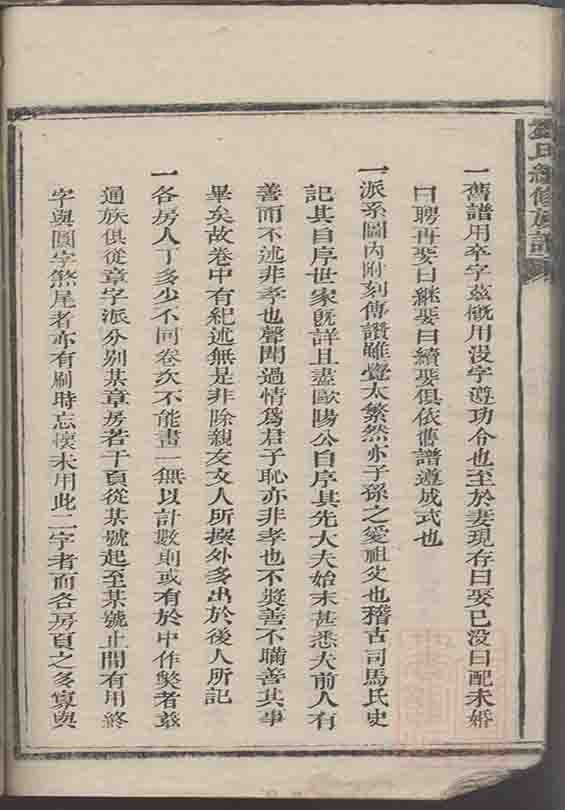 氏續修族譜
一舊譜用卒字茲概用沒字遵功令也至於妻現存曰娶已沒曰配未婚
曰聘再娶曰繼娶曰續娶俱依舊譜遵成式也
一派系圖內附刻傳讚雖覺太繁然亦子孫之愛祖父也稽古司馬氏史
記其自序世家既詳且盡歐陽公自序其先大夫始末甚悉夫前人有
善而不述非孝也聲聞過情爲君子恥亦非孝也不獎善不瞞善其事
畢矣故卷中有紀述無是非除親友文人所撰外多出於後人所記
一各房人丁多少不同卷次不能畫一無以計數則或有於中作獘者茲
通族俱從章字派分別某章房若干頁從某號起至某號止間有用終
字與圓字煞尾者亦有刷時忘懷未用此二字者而各房頁之多寡與